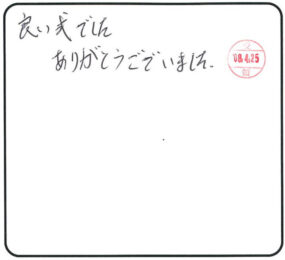 良い式でした
ありがとうございました.
08.4.25